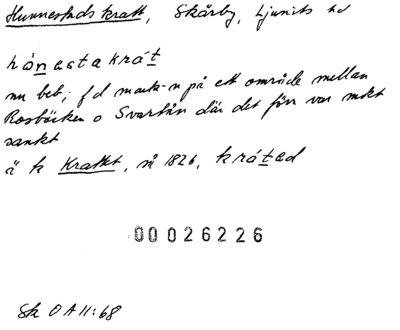 Hunnestads kratt, Skårby, Ljunits hd
hónastakrát
nu beb; f d mark-n på ett område mellan
Rosbäcken o Svartån där det förr var mkt
sankt
ä k Krattet, så 1826, krátad
00026226
Sk OA 11:68